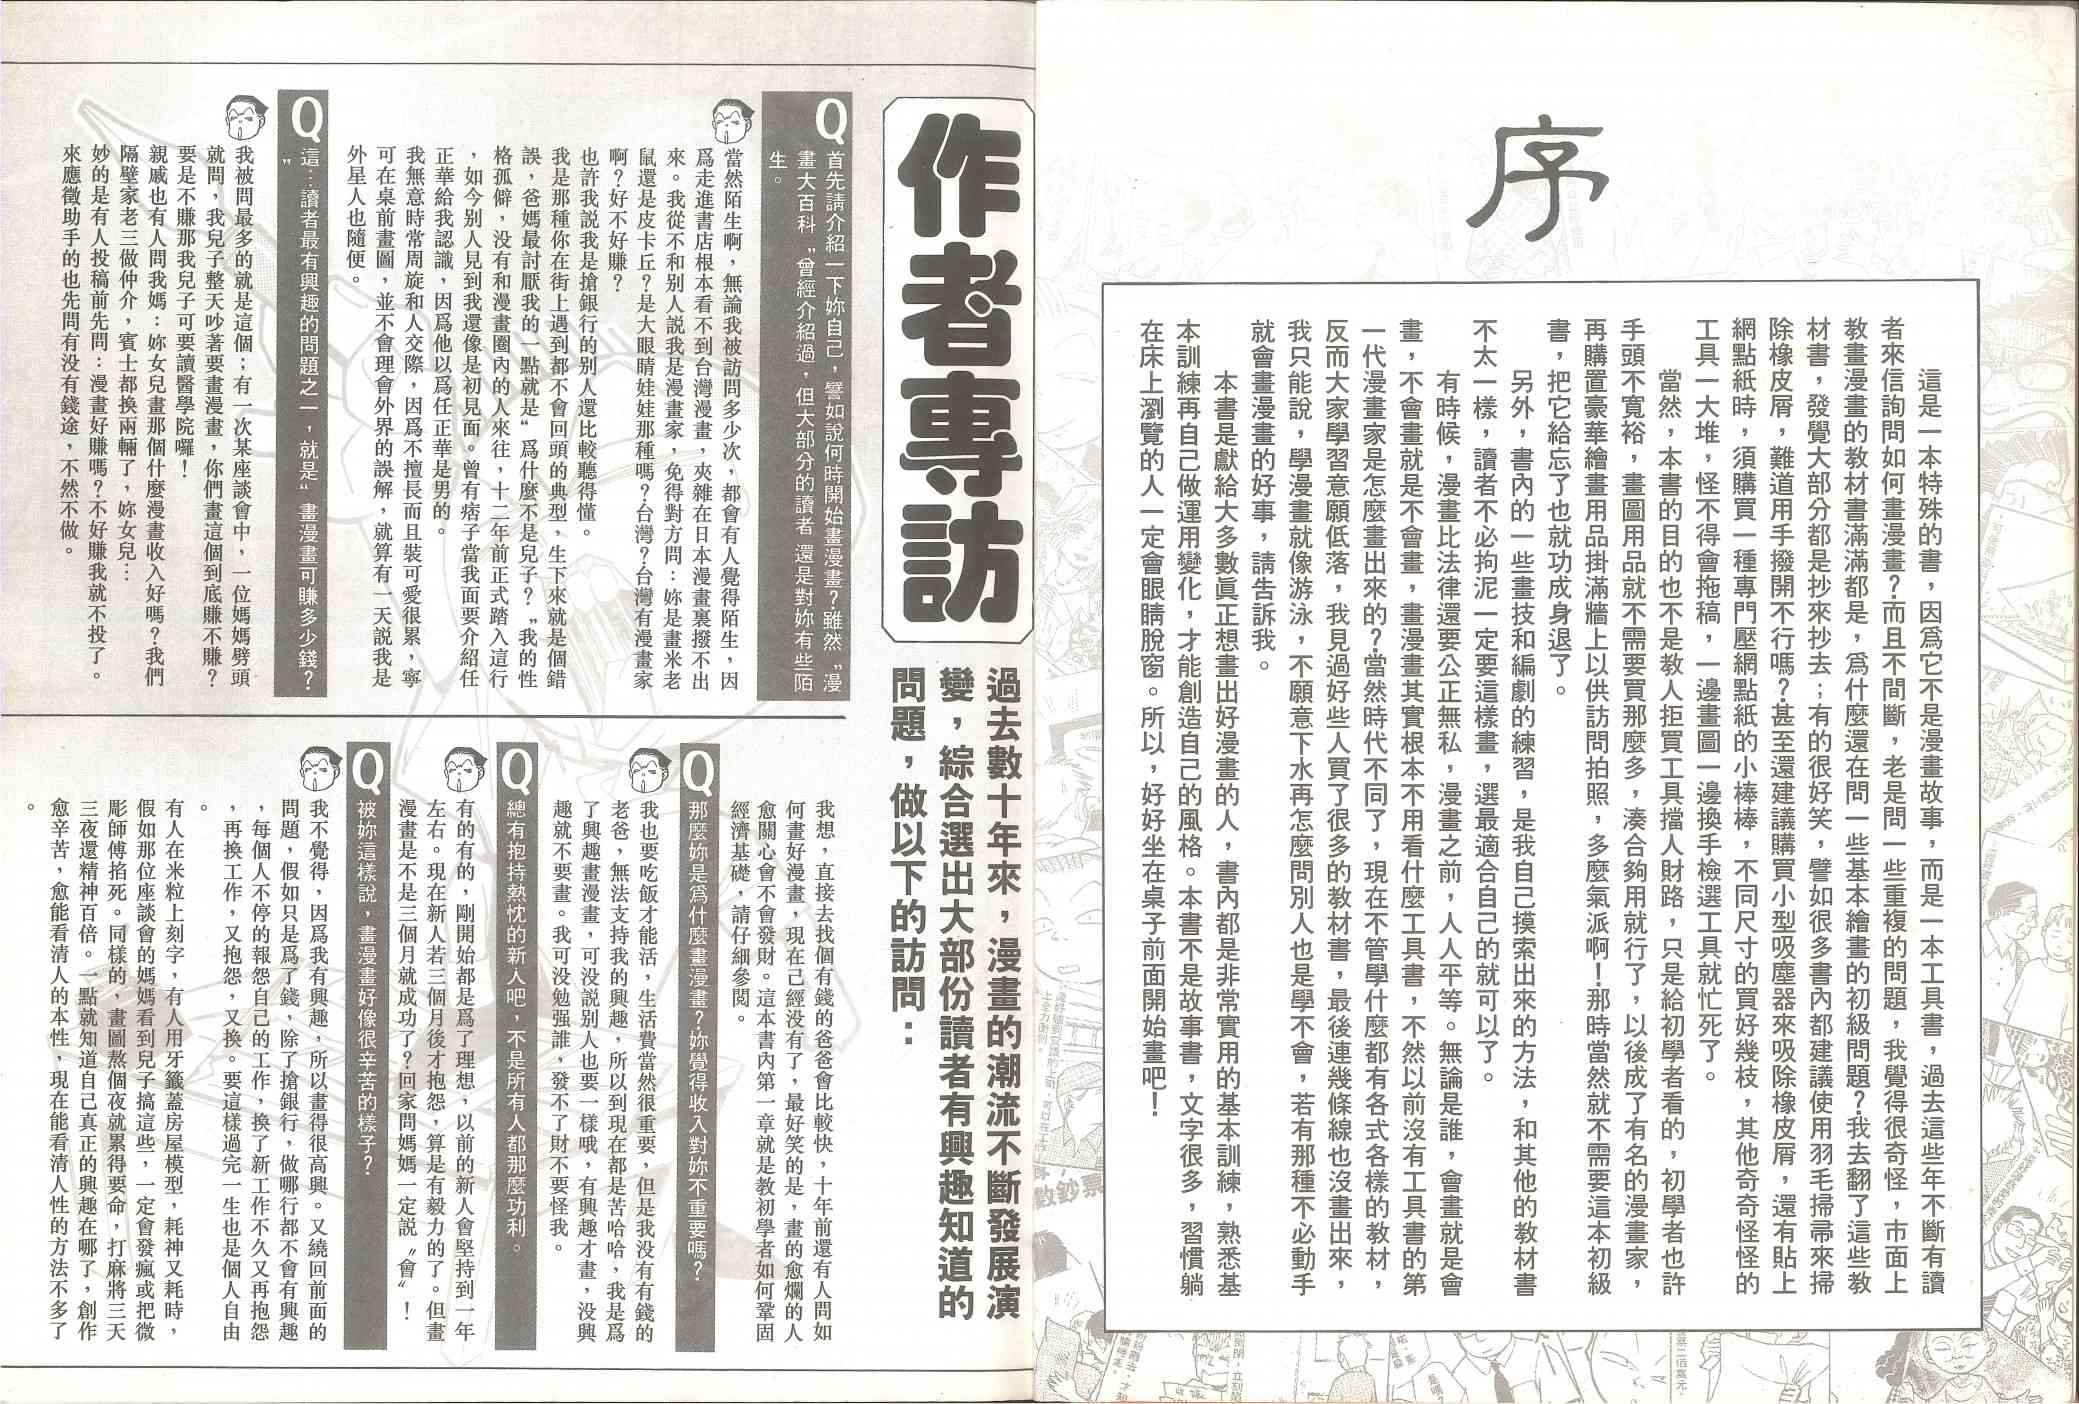 序
這是一本特殊的書，因爲它不是漫畫故事，而是一本工具書，過去這些年不斷有讀
者來信詢問如何畫漫畫？而且不間斷，老是問一些重複的問題，我覺得很奇怪，市面上
教畫漫畫的教材書滿滿都是，爲什麼還在問一些基本繪畫的初級問題？我去翻了這些教
材書，發覺大部分都是抄來抄去；有的很好笑，譬如很多書內都建議使用羽毛掃帚來掃
除橡皮屑，難道用手撥開不行嗎？甚至還建議購買小型吸塵器來吸除橡皮屑，還有貼上
網點紙時，須購買一種專門壓網點紙的小棒棒，不同尺寸的買好幾枝，其他奇奇怪怪的
工具一大堆，怪不得會拖稿，一邊畫圖一邊換手檢選工具就忙死了。
當然，本書的目的也不是教人拒買工具擋人財路，只是給初學者看的，初學者也許
手頭不寬裕，畫圖用品就不需要買那麼多，湊合夠用就行了，以後成了有名的漫畫家，
再購置豪華繪畫用品掛滿牆上以供訪問拍照，多麼氣派啊！那時當然就不需要這本初級
書，把它給忘了也就功成身退了。
另外，書內的一些畫技和編劇的練習，是我自己摸索出來的方法，和其他的教材書
不太一樣，讀者不必拘泥一定要這樣畫，選最適合自己的就可以了。
有時候，漫畫比法律還要公正無私，漫畫之前，人人平等。無論是誰，會畫就是會
畫，不會畫就是不會畫，畫漫畫其實根本不用看什麼工具書，不然以前沒有工具書的第
一代漫畫家是怎麼畫出來的？當然時代不同了，現在不管學什麼都有各式各樣的教材，
反而大家學習意願低落，我見過好些人買了很多的教材書，最後連幾條線也沒畫出來，
我只能說，學漫畫就像游泳，不願意下水再怎麼問別人也是學不會，若有那種不必動手
就會畫漫畫的好事，請告訴我。
本書是獻給大多數眞正想畫出好漫畫的人，書內都是非常實用的基本訓練，熟悉基
本訓練再自己做運用變化，才能創造自己的風格。本書不是故事書，文字很多，習慣躺
在床上瀏覽的人一定會眼睛脫窗。所以，好好坐在桌子前面開始畫吧！
作者專訪
過去數十年來，漫畫的潮流不斷發展演
變，綜合選出大部份讀者有興趣知道的
問題，做以下的訪問：
Q
首先請介紹一下妳自己，譬如說何時開始畫漫畫？雖然〝漫
畫大百科〞曾經介紹過，但大部分的讀者還是對妳有些陌
生。
當然陌生啊，無論我被訪問多少次，都會有人覺得陌生，因
爲走進書店根本看不到台灣漫畫，夾雜在日本漫畫裏撥不出
來。我從不和別人說我是漫畫家，免得對方問：妳是畫米老
鼠還是皮卡丘？是大眼睛娃娃那種嗎？台灣？台灣有漫畫家
啊？好不好賺？
也許我說我是搶銀行的別人還比較聽得懂。
我是那種你在街上遇到都不會回頭的典型，生下來就是個錯
誤，爸媽最討厭我的一點就是〝爲什麼不是兒子？〞我的性
格孤僻，沒有和漫畫圈內的人來往，十二年前正式踏入這行
，如今別人見到我還像是初見面。曾有痞子當我面要介紹任
正華給我認識，因爲他以爲任正華是男的。
我無意時常周旋和人交際，因爲不擅長而且裝可愛很累，寧
可在桌前畫圖，並不會理會外界的誤解，就算有一天說我是
外星人也隨便。
Q
這…讀者最有興趣的問題之一，就是〝畫漫畫可賺多少錢？
〞
我被問最多的就是這個；有一次某座談會中，一位媽媽劈頭
就問，我兒子整天吵著要畫漫畫，你們畫這個到底賺不賺？
要是不賺那我兒子可要讀醫學院囉！
親戚也有人問我媽：妳女兒畫那個什麼漫畫收入好嗎？我們
隔壁家老三做仲介，賓士都換兩輛了，妳女兒…
妙的是有人投稿前先問：漫畫好賺嗎？不好賺我就不投了。
來應徵助手的也先問有沒有錢途，不然不做。
我想，直接去找個有錢的爸爸會比較快，十年前還有人問如
何畫好漫畫，現在已經沒有了，最好笑的是，畫的愈爛的人
愈關心會不會發財。這本書內第一章就是教初學者如何鞏固
經濟基礎，請仔細參閱。
Q
那麼妳是爲什麼畫漫畫？妳覺得收入對妳不重要嗎？
我也要吃飯才能活，生活費當然很重要，但是我沒有有錢的
老爸，無法支持我的興趣，所以到現在都是苦哈哈，我是爲
了興趣畫漫畫，可沒說別人也要一樣哦，有興趣才畫，沒興
趣就不要畫。我可沒勉強誰，發不了財不要怪我。
Q
總有抱持熱忱的新人吧，不是所有人都那麼功利。
有的有的，剛開始都是爲了理想，以前的新人會堅持到一年
左右。現在新人若三個月後才抱怨，算是有毅力的了。但畫
漫畫是不是三個月就成功了？回家問媽媽一定說〝會〞！
Q
被妳這樣說，畫漫畫好像很辛苦的樣子？
我不覺得，因爲我有興趣，所以畫得很高興。又繞回前面的
問題，假如只是爲了錢，除了搶銀行，做哪行都不會有興趣
，每個人不停的報怨自己的工作，換了新工作不久又再抱怨
，再換工作，又抱怨，又換。要這樣過完一生也是個人自由
。
有人在米粒上刻字，有人用牙籤蓋房屋模型，耗神又耗時，
假如那位座談會的媽媽看到兒子搞這些，一定會發瘋或把微
彫師傅掐死。同樣的，畫圖熬個夜就累得要命，打麻將三天
三夜還精神百倍。一點就知道自己真正的興趣在哪了，創作
愈辛苦，愈能看清人的本性，現在能看清人性的方法不多了
。